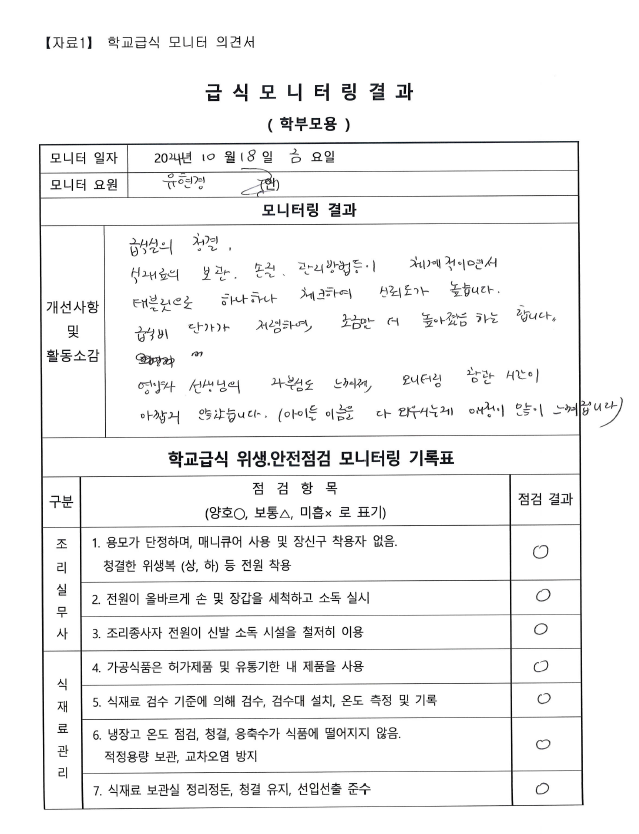 【자료1】 학교급식 모니터 의견서
급 식 모 니 터 링 결 과
( 학부모용 )
모니터 일자 2024년 10 월 18 일 금 요일
모니터 요원 유현경 (인)
모니터링 결과
개선사항
및
활동소감
급식실의 청결,
식재료의 보관, 손질, 관리방법등이 체계적이면서
태블릿으로 하나하나 체크하여 신뢰도가 높습니다.
급식비 단가가 저렴하여, 조금만 더 높아졌음 하는 합니다.
영양사 선생님의 자부심도 느껴져, 모니터링 참관 시간이
아깝지 않았습니다. (아이들 이름을 다 외우시는데 애정이 많이 느껴집니다)
학교급식 위생.안전점검 모니터링 기록표
구분
점 검 항 목
(양호○, 보통△, 미흡× 로 표기)
점검 결과
조리실무사
1. 용모가 단정하며, 매니큐어 사용 및 장신구 착용자 없음. ○
청결한 위생복 (상, 하) 등 전원 착용
2. 전원이 올바르게 손 및 장갑을 세척하고 소독 실시 ○
3. 조리종사자 전원이 신발 소독 시설을 철저히 이용 ○
식재료관리
4. 가공식품은 허가제품 및 유통기한 내 제품을 사용 ○
5. 식재료 검수 기준에 의해 검수, 검수대 설치, 온도 측정 및 기록 ○
6. 냉장고 온도 점검, 청결, 응축수가 식품에 떨어지지 않음. ○
적정용량 보관, 교차오염 방지
7. 식재료 보관실 정리정돈, 청결 유지, 선입선출 준수 ○